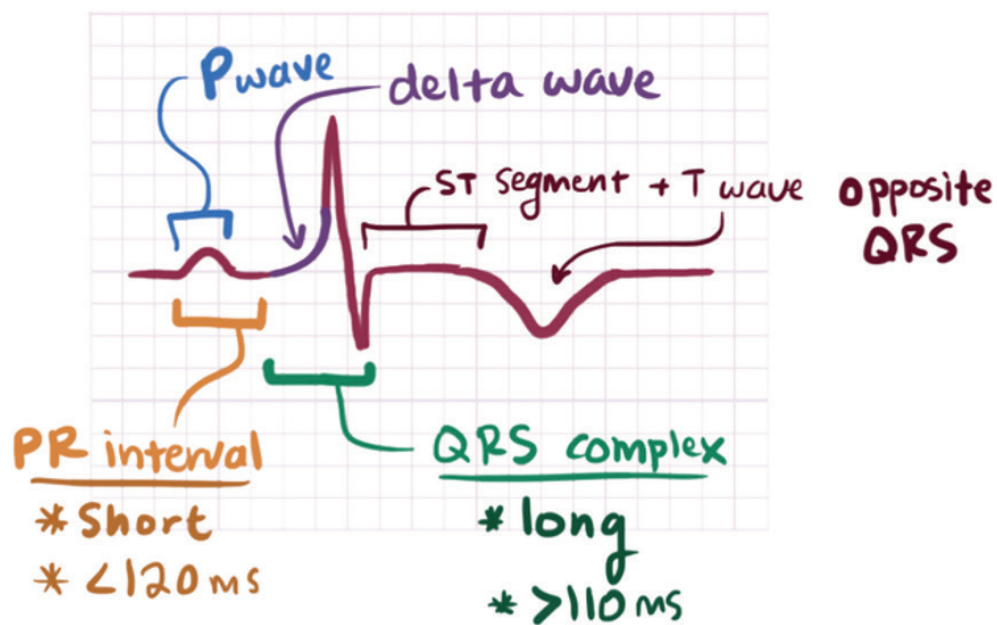 P wave
delta wave
ST segment + T wave opposite
QRS
PR interval
* Short
* <120 ms
QRS complex
* long
* >110 ms